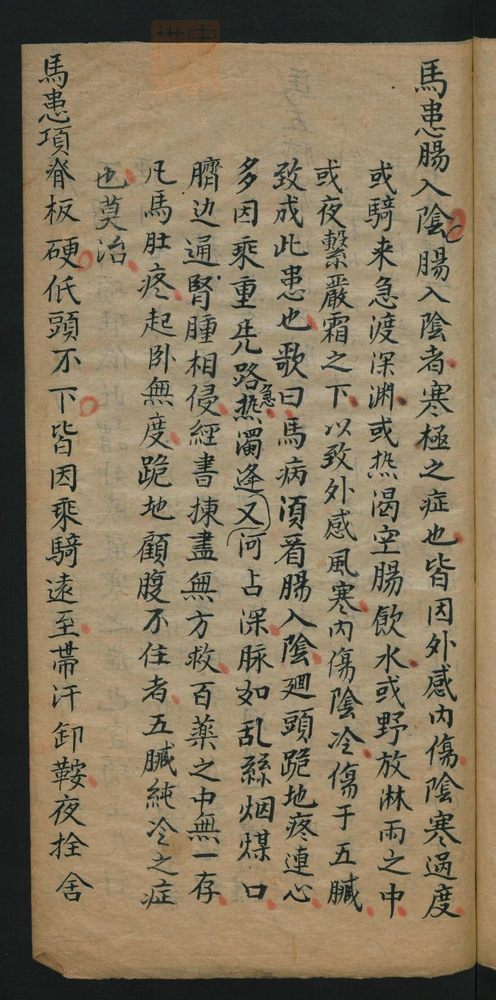 馬患腸入陰腸入陰者寒極之症也皆因外感內傷陰寒過度
或騎来急渡深渊或热渴空腸飲水或野放淋雨之中
或夜繫嚴霜之下以致外感風寒內傷陰冷傷于五臟
致成此患也歌曰馬病湏看腸入陰廻頭跪地疼連心
多因乘重兎路热急濁逢又河占深脉如乱絲烟煤口
臍边通腎腫相侵經書揀盡無方救百薬之中無一存
凡馬肚疼起卧無度跪地顧腹不住者五臟純冷之症
也莫治
馬患項脊板硬低頭不下皆因乘騎遠至帶汗卸鞍夜拴舍